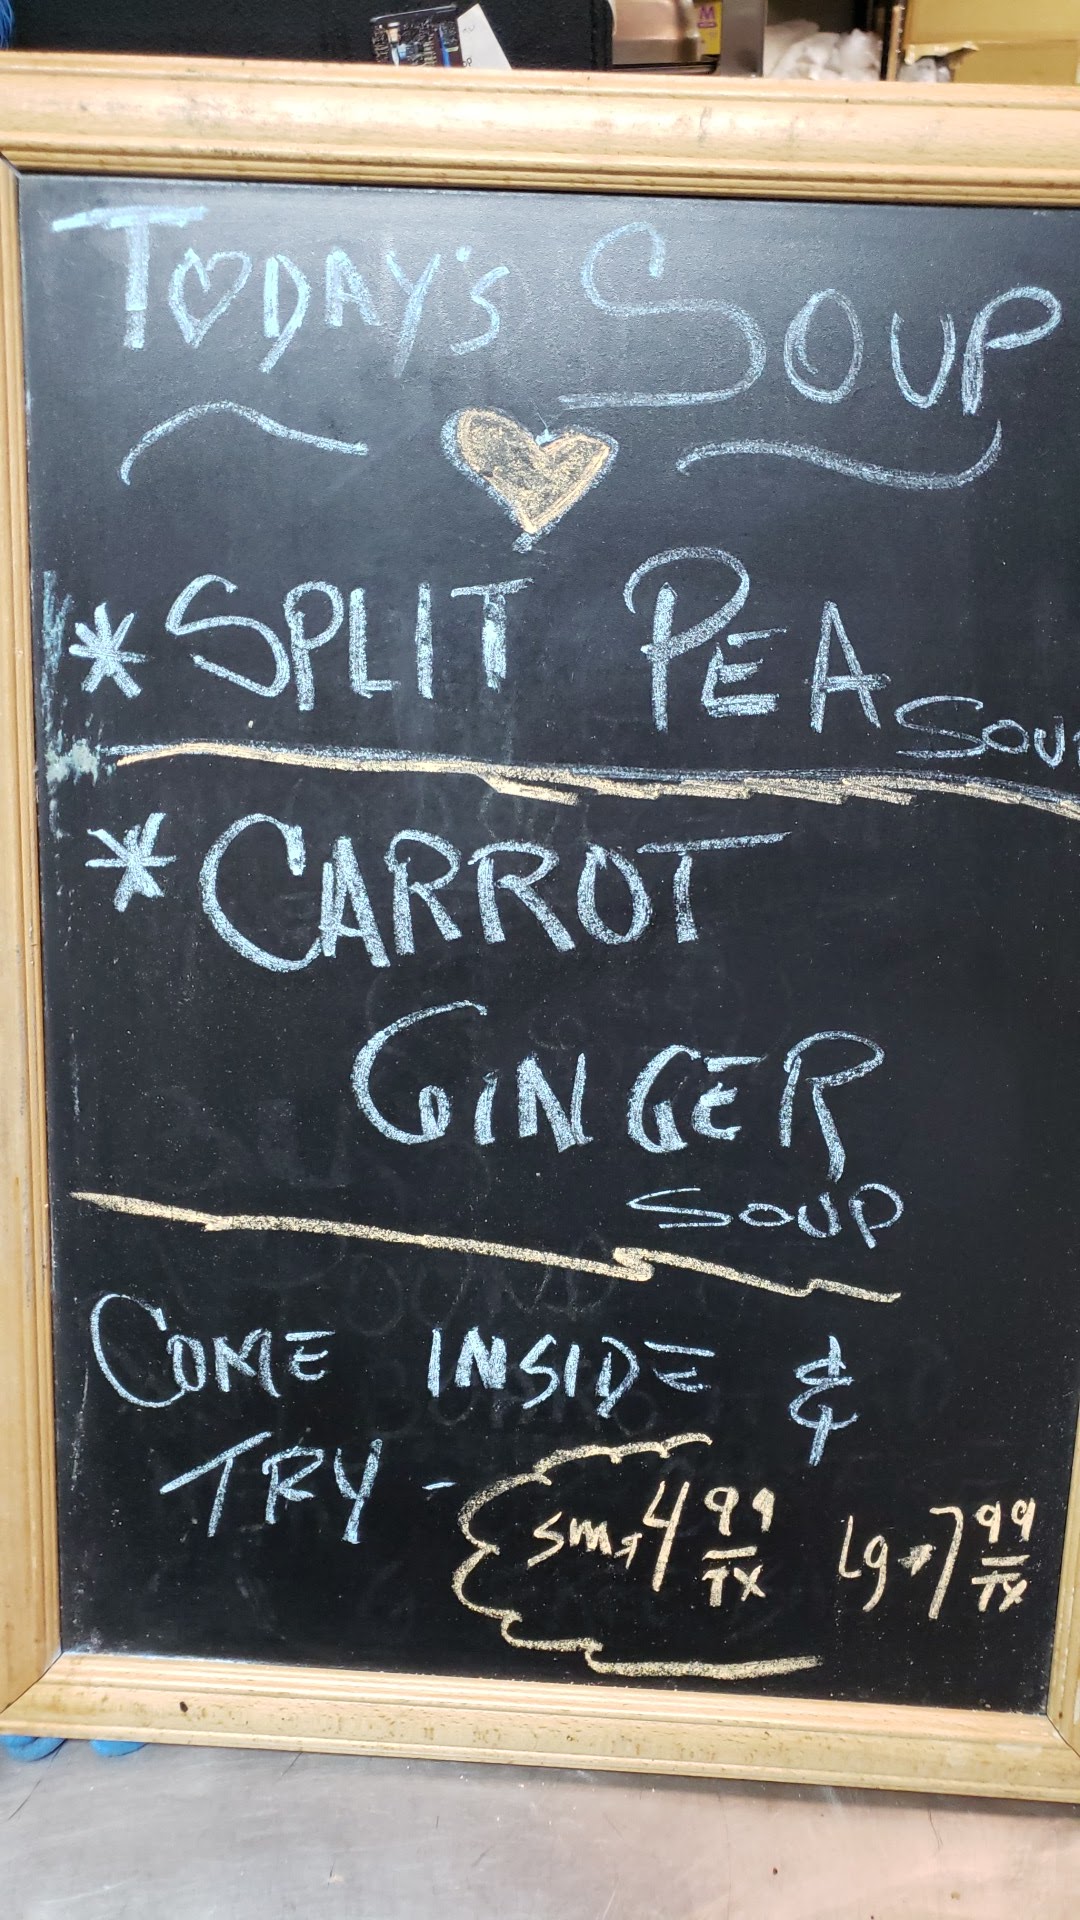 TODAY'S SOUP
* SPLIT PEA
SOUP
* CARROT
GINGER
SOUP
COME INSIDE &
TRY - sm→4 99/TX lg→7 99/TX